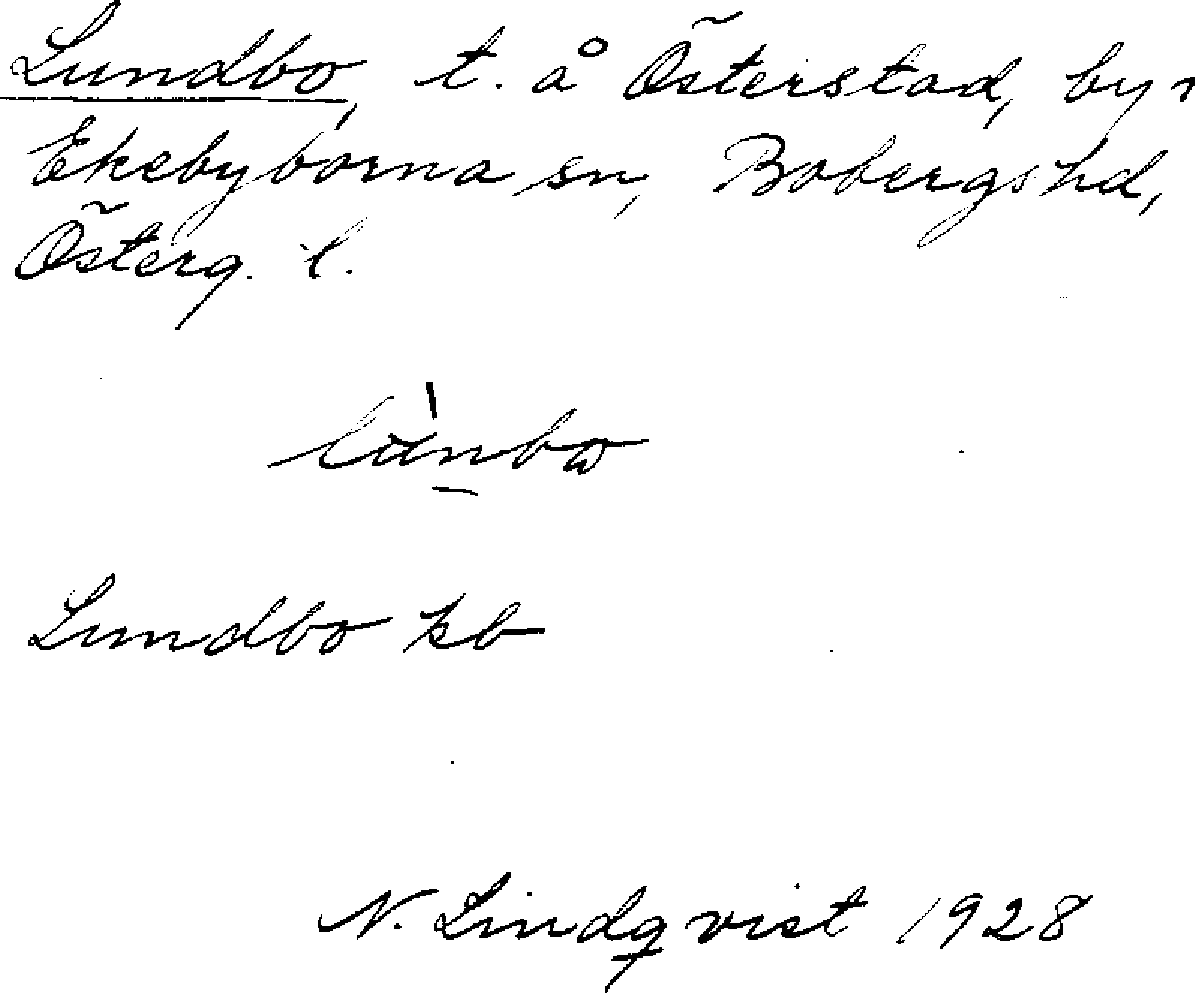 Lundbo, t. å Österstad, by
Ekebyborna sn, Bobergs hd,
Österg. l.
Lundbo kb
N. Lindqvist 1928